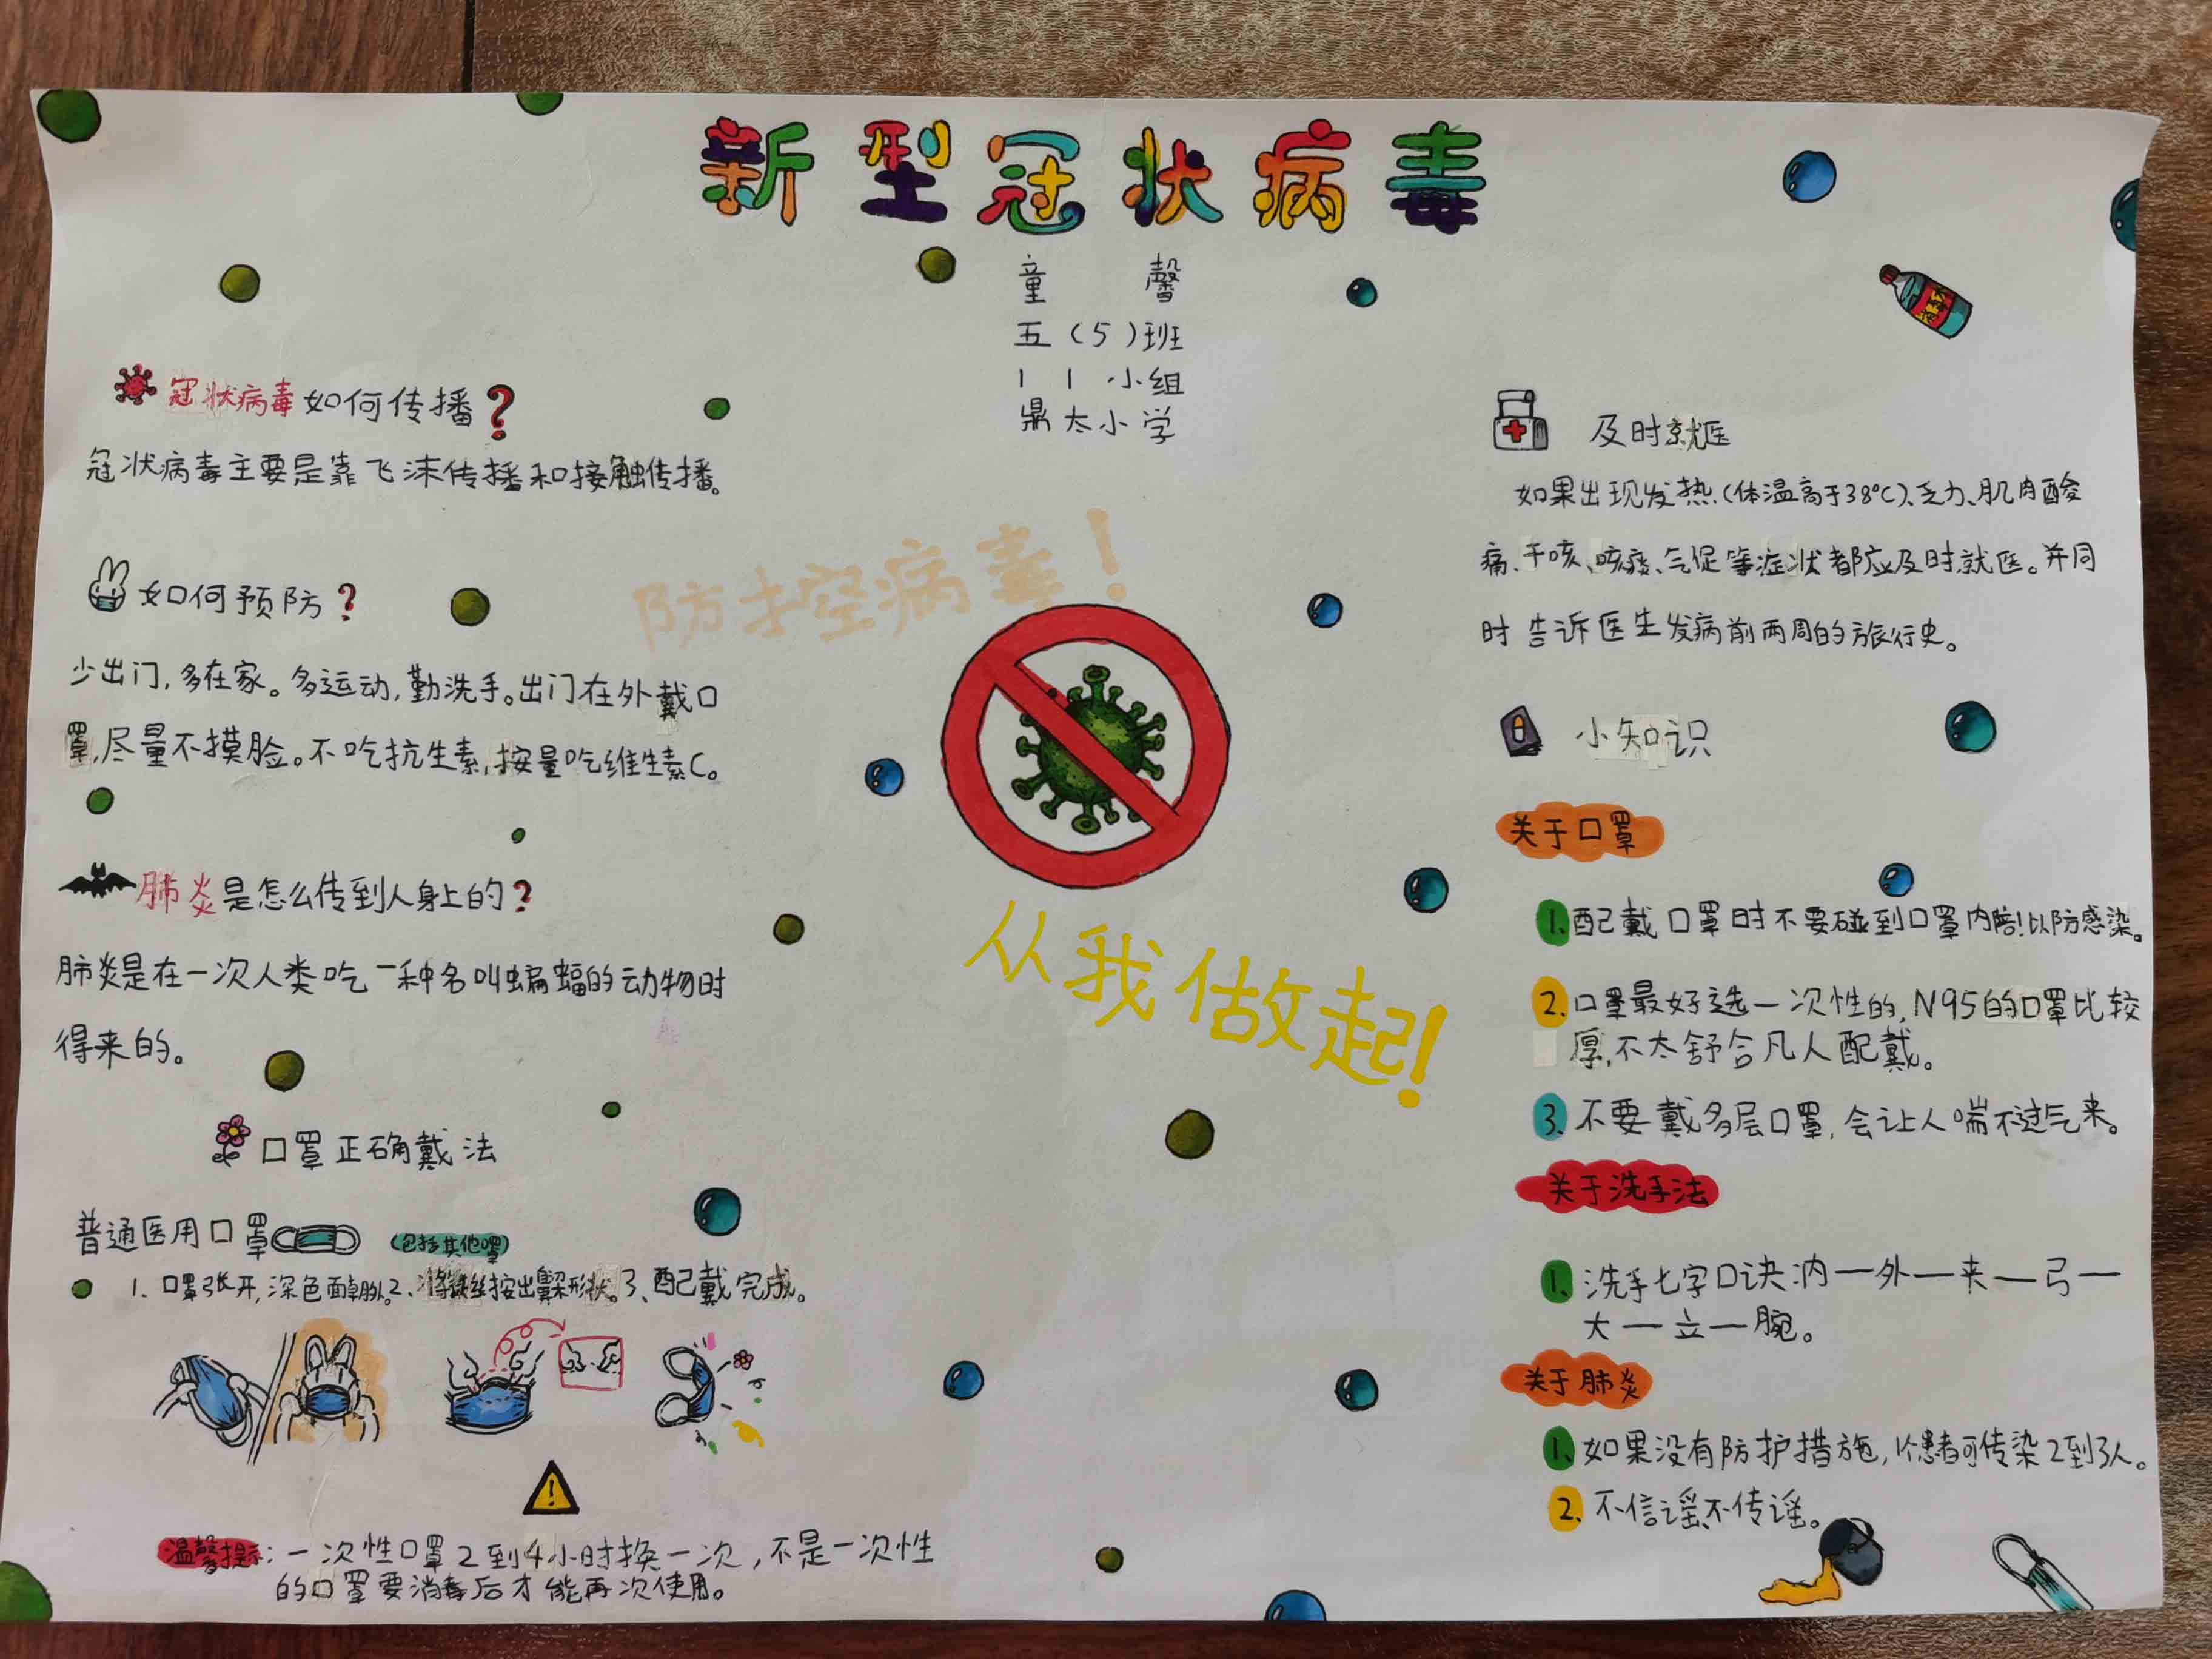 新型冠状病毒
童 馨
五（5）班
11小组
鼎太小学
冠状病毒如何传播?
冠状病毒主要是靠飞沫传播和接触传播。
如何预防?
少出门,多在家。多运动,勤洗手。出门在外戴口
罩,尽量不摸脸。不吃抗生素,按量吃维生素C。
肺炎是怎么传到人身上的?
肺炎是在一次人类吃一种名叫蝙蝠的动物时
得来的。
口罩正确戴法
普通医用口罩
(包括其他罩)
1、口罩张开,深色面朝外。2、将铁丝按出鼻梁形状。3、配戴完成。
温馨提示:一次性口罩2到4小时换一次,不是一次性
的口罩要消毒后才能再次使用。
防控病毒!
从我做起!
及时就医
如果出现发热(体温高于38℃)、乏力、肌肉酸
痛、干咳、咳痰、气促等症状都应及时就医。并同
时告诉医生发病前两周的旅行史。
小知识
关于口罩
1.配戴口罩时不要碰到口罩内陪!以防感染。
2.口罩最好选一次性的,N95的口罩比较
厚,不太舒合凡人配戴。
3.不要戴多层口罩,会让人喘不过气来。
关于洗手法
1.洗手七字口诀:内一外一夹一弓一
大一立一腕。
关于肺炎
1.如果没有防护措施,1个患者可传染2到3人。
2.不信谣、不传谣。